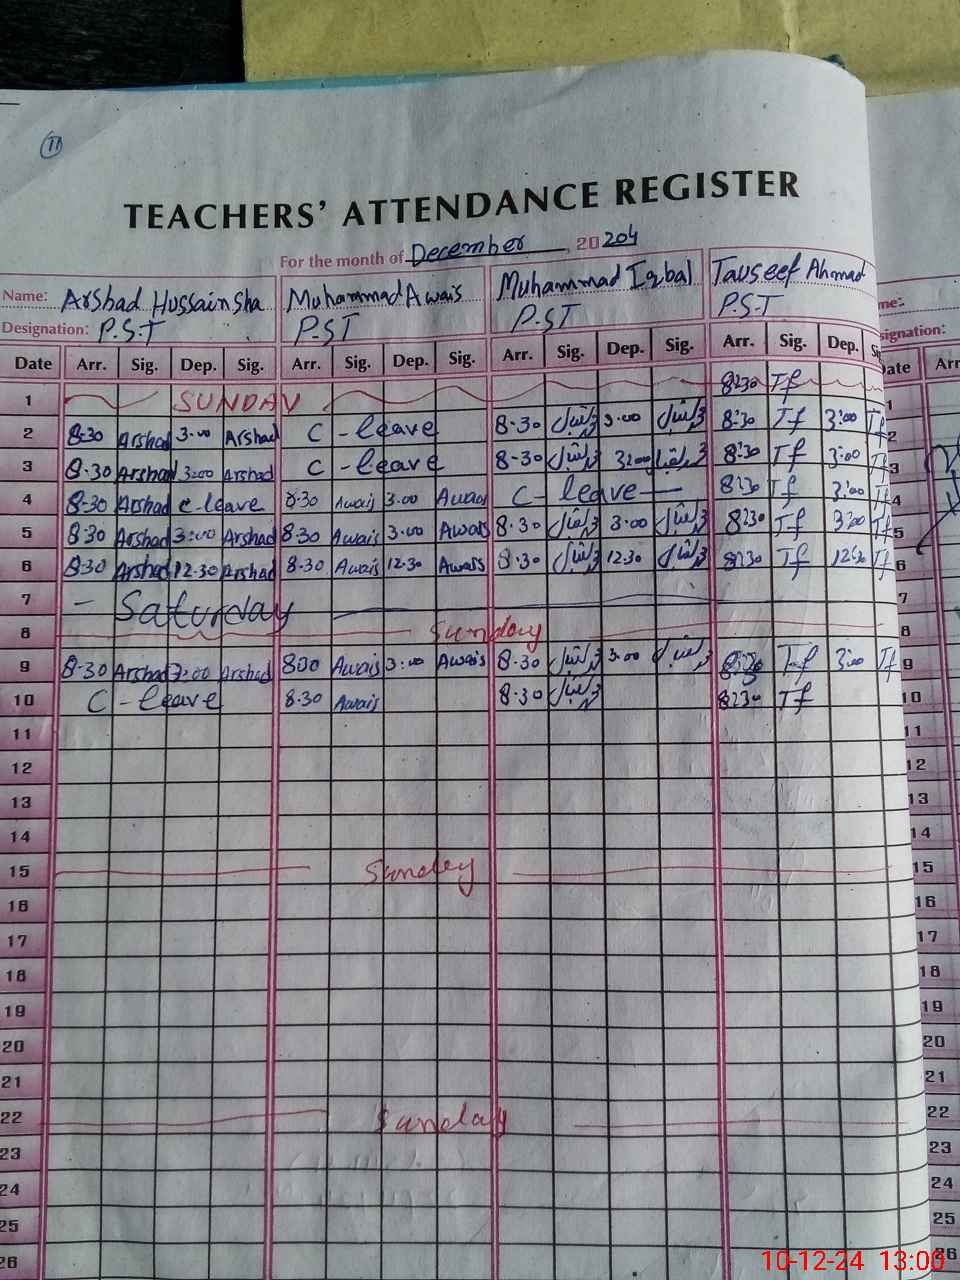 11
TEACHERS' ATTENDANCE REGISTER
For the month of December, 20 204
Name: Arshad Hussain Sha Muhammad Awais Muhammad Iqbal Tauseef Ahmad
Designation: P.S.T P.ST P.ST P.S.T
Date Arr. Sig. Dep. Sig. Arr. Sig. Dep. Sig. Arr. Sig. Dep. Sig. Arr. Sig. Dep.
1 SUNDAY 8:30 Tf
2 8-30 Arshad 3.00 Arshad C - leave 8-30 3.00 8:30 Tf 3:00 Tf
3 8-30 Arshad 3:00 Arshad C - leave 8-30 3:00 8:30 Tf 3:00 Tf
4 8-30 Arshad c-leave 8.30 Awais 3.00 Awais C- leave 8:30 Tf 3:00 Tf
5 8-30 Arshad 3:00 Arshad 8.30 Awais 3.00 Awais 8.30 3.00 8:30 Tf 3:00 Tf
6 8:30 Arshad 12.30 Arshad 8.30 Awais 12.30 Awais 8.30 12.30 8:30 Tf 12:30 Tf
7 - Saturday
8 Sunday
9 8-30 Arshad 3:00 Arshad 800 Awais 3:00 Awais 8.30 3.00 8:30 Tf 3:00 Tf
10 C - leave 8.30 Awais 8.30 8:30 Tf
11
12
13
14
15 Sunday
16
17
18
19
20
21
22 Sunday
23
24
25
26
me:
signation:
ate Arr
1
2
3
4
5
6
7
8
9
10
11
12
13
14
15
16
17
18
19
20
21
22
23
24
25
26
10-12-24 13:00